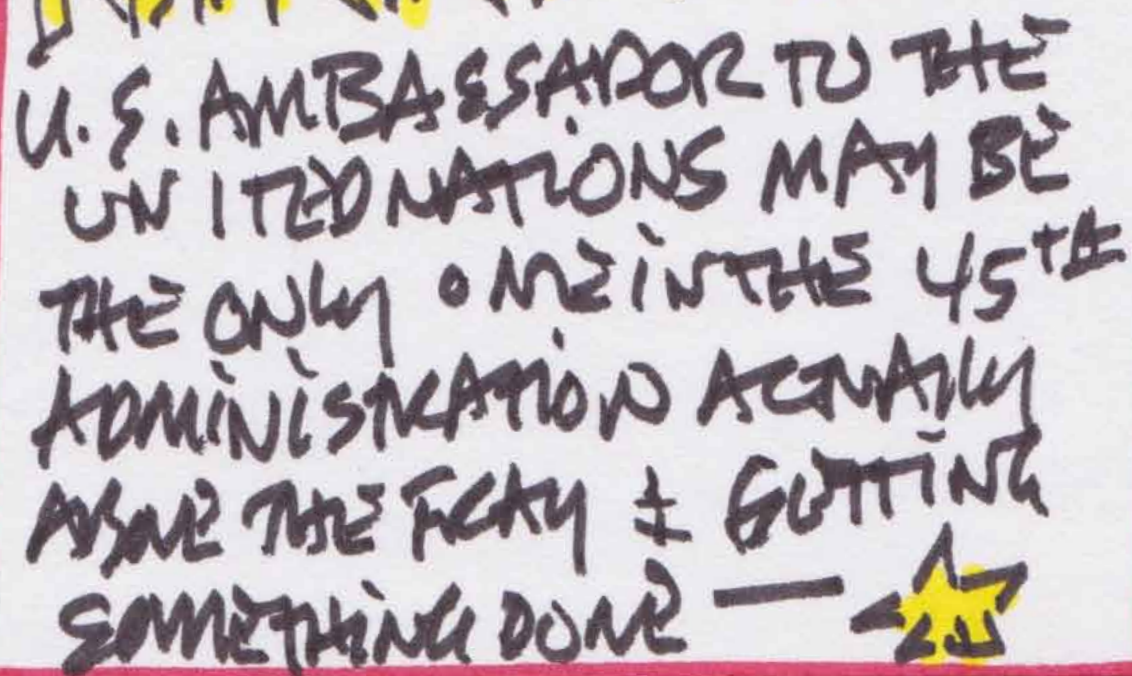 U.S. AMBASSADOR TO THE
UNITED NATIONS MAY BE
THE ONLY ONE IN THE 45TH
ADMINISTRATION ACTUALLY
ABOVE THE FRAY ± GETTING
SOMETHING DONE —